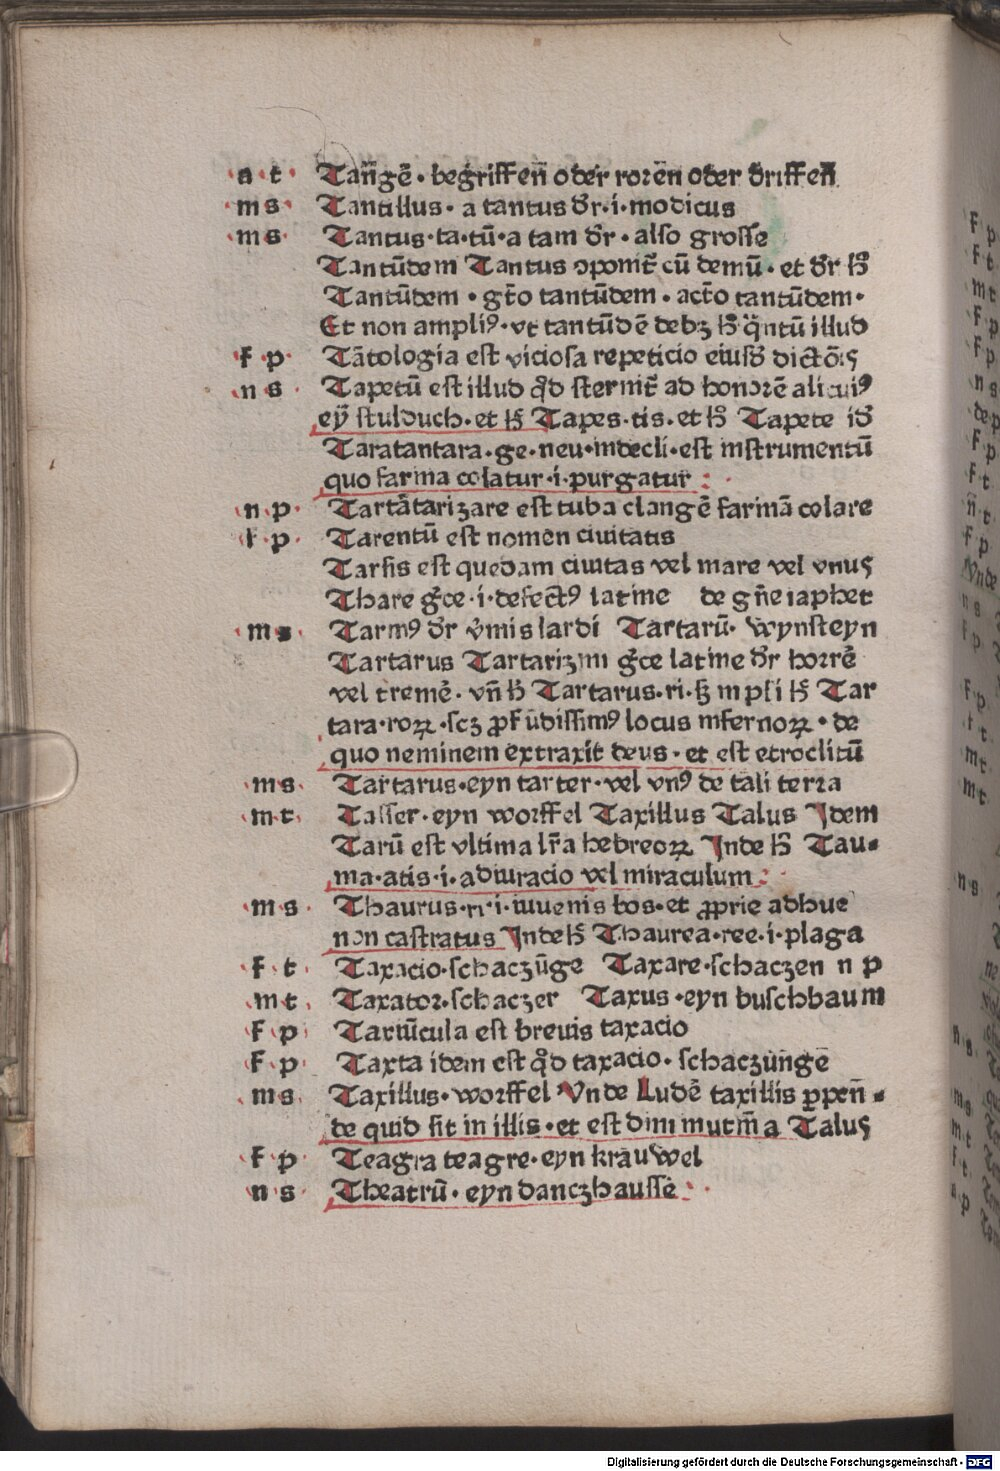 a t Tan̄gē · begriffen̄ oder roren̄ oder driffen̄
m s Tantillus · a tantus dr̄ · i · modicus
m s Tantus · ta · tū · a tam dr̄ · also grosse
Tantūdem Tantus ꝯponit̄ cū demū · et dr̄ hꝫ̄
Tantūdem · gt̄o tantūdem · act̄o tantūdem ·
Et non ampliꝰ · vt tantūdē debꝫ hꝫ̄ q̈ntū illud
f p Tātologia est viciosa repeticio eiusd̄ dictōis
n s Tapetū est illud qd̄ sternit̄ ad honorē alicuiꝰ
eÿ stulduch · et hꝫ̄ Tapes · tis · et hꝫ̄ Tapete id̄
Taratantara · ge · neu · indecli · est instrumentū
quo farina colatur · i · purgatur :
n p Tartātarizare est tuba clangē farinā colare
f p Tarentū est nomen ciuitatis
Tarsis est quedam ciuitas vel mare vel vnus
Thare gͨce · i · defectꝰ latine de gn̄e iaphet
m s Tarmꝰ dr̄ v̄mis lardi Tartarū · wynsteyn
Tartarus Tartarizini gͨce latine dr̄ horrē
vel tremē · vn̄ hꝫ̄ Tartarus · ri · hꝫ in pli hꝫ̄ Tar
tara · roꝝ · scꝫ ꝓfūdissimꝰ locus infernoꝝ · de
quo neminem extraxit deus · et est etroclitū
m s Tartarus · eyn tarter · vel vnꝰ de tali terra
m t Tasser · eyn worffel Taxillus Talus Idem
Tarū est vltima lr̄a hebreoꝝ Inde hꝫ̄ Tau-
ma · atis · i · adiuracio vel miraculum :
m s Thaurus · ri · i · iuuenis bos · et ꝓprie adhuc
non castratus Inde hꝫ̄ Thaurea · ree · i · plaga
f t Taxacio · schaczūge Taxare · schaczen n p
m t Taxator · schaczer Taxus · eyn buschbaum
f p Tariūcula est breuis taxacio
f p Taxta idem est qd̄ taxacio · schaczun̄gē
m s Taxillus · worffel Vnde Ludē taxillis ꝑpen̄-
de quid sit in illis · et est dimimutin̄a Talus
f p Teagra teagre · eyn krauwel
n s Theatrū · eyn danczhausse :
Digitalisierung gefördert durch die Deutsche Forschungsgemeinschaft - DFG